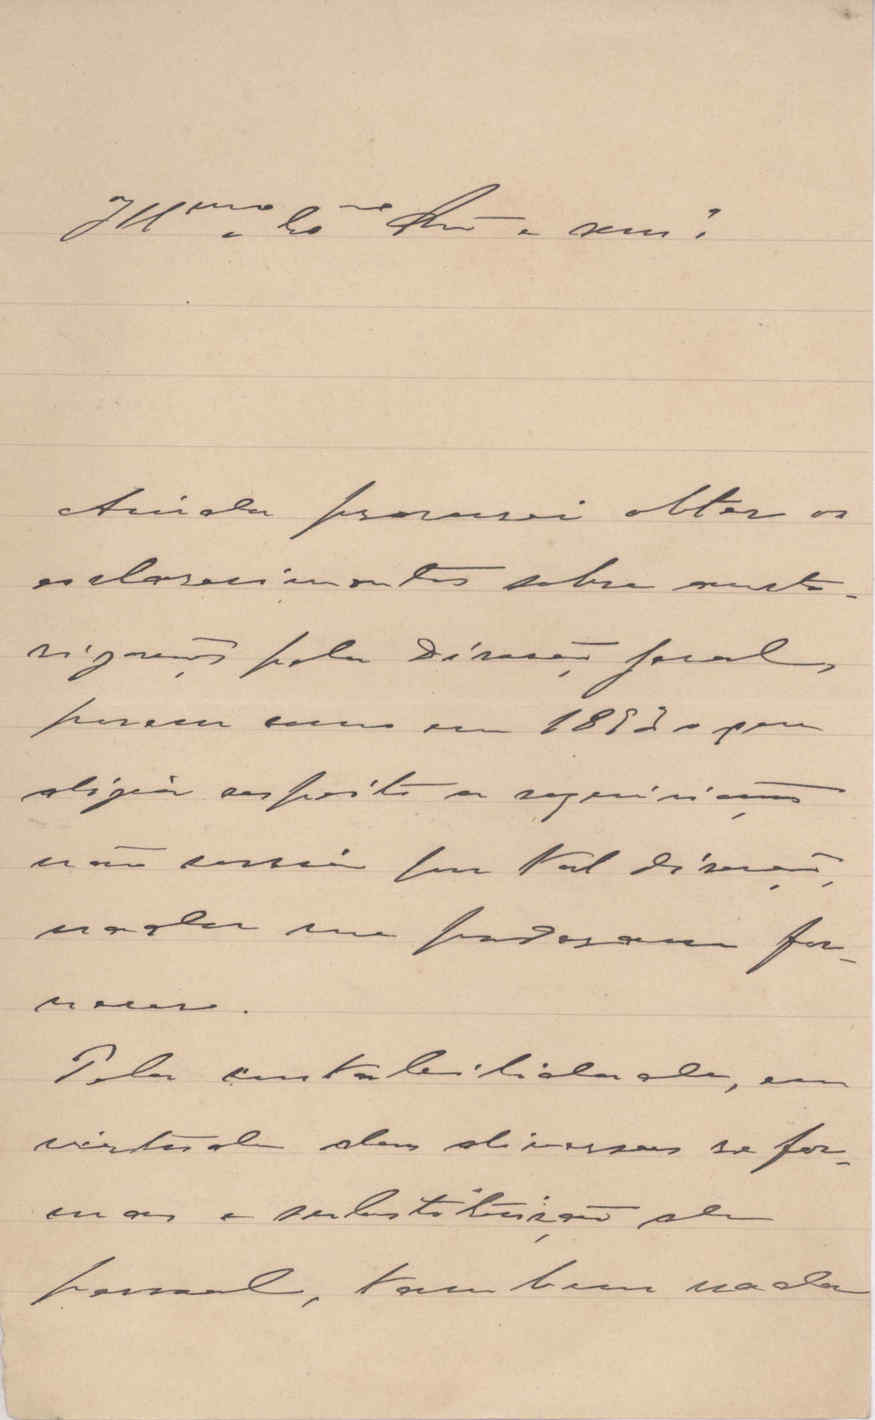 Illmo e Exmo Snr e
Ainda procurei obter os
esclarecimentos sobre
pela Direcção Geral,
porem como em 188 o que
dizia respeito a
não corria por tal direcção,
nada me poderam for-
necer.
Pela contabilidade, em
virtude das diversas refor-
mas e substituição de
pessoal, tambem nada